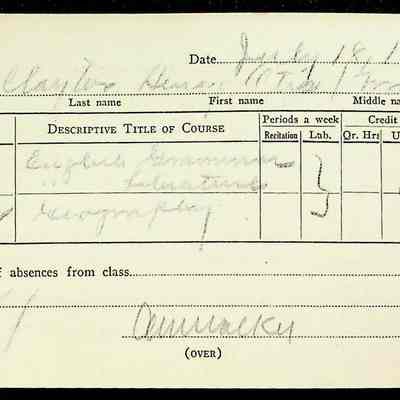 Date July 18, 1
Clayton Henry
Last name First name Middle na
DESCRIPTIVE TITLE OF COURSE Periods a week Credit
Recitation Lab. Qr. Hrs U
English Grammar
" Literature
Geography
f absences from class
(OVER)